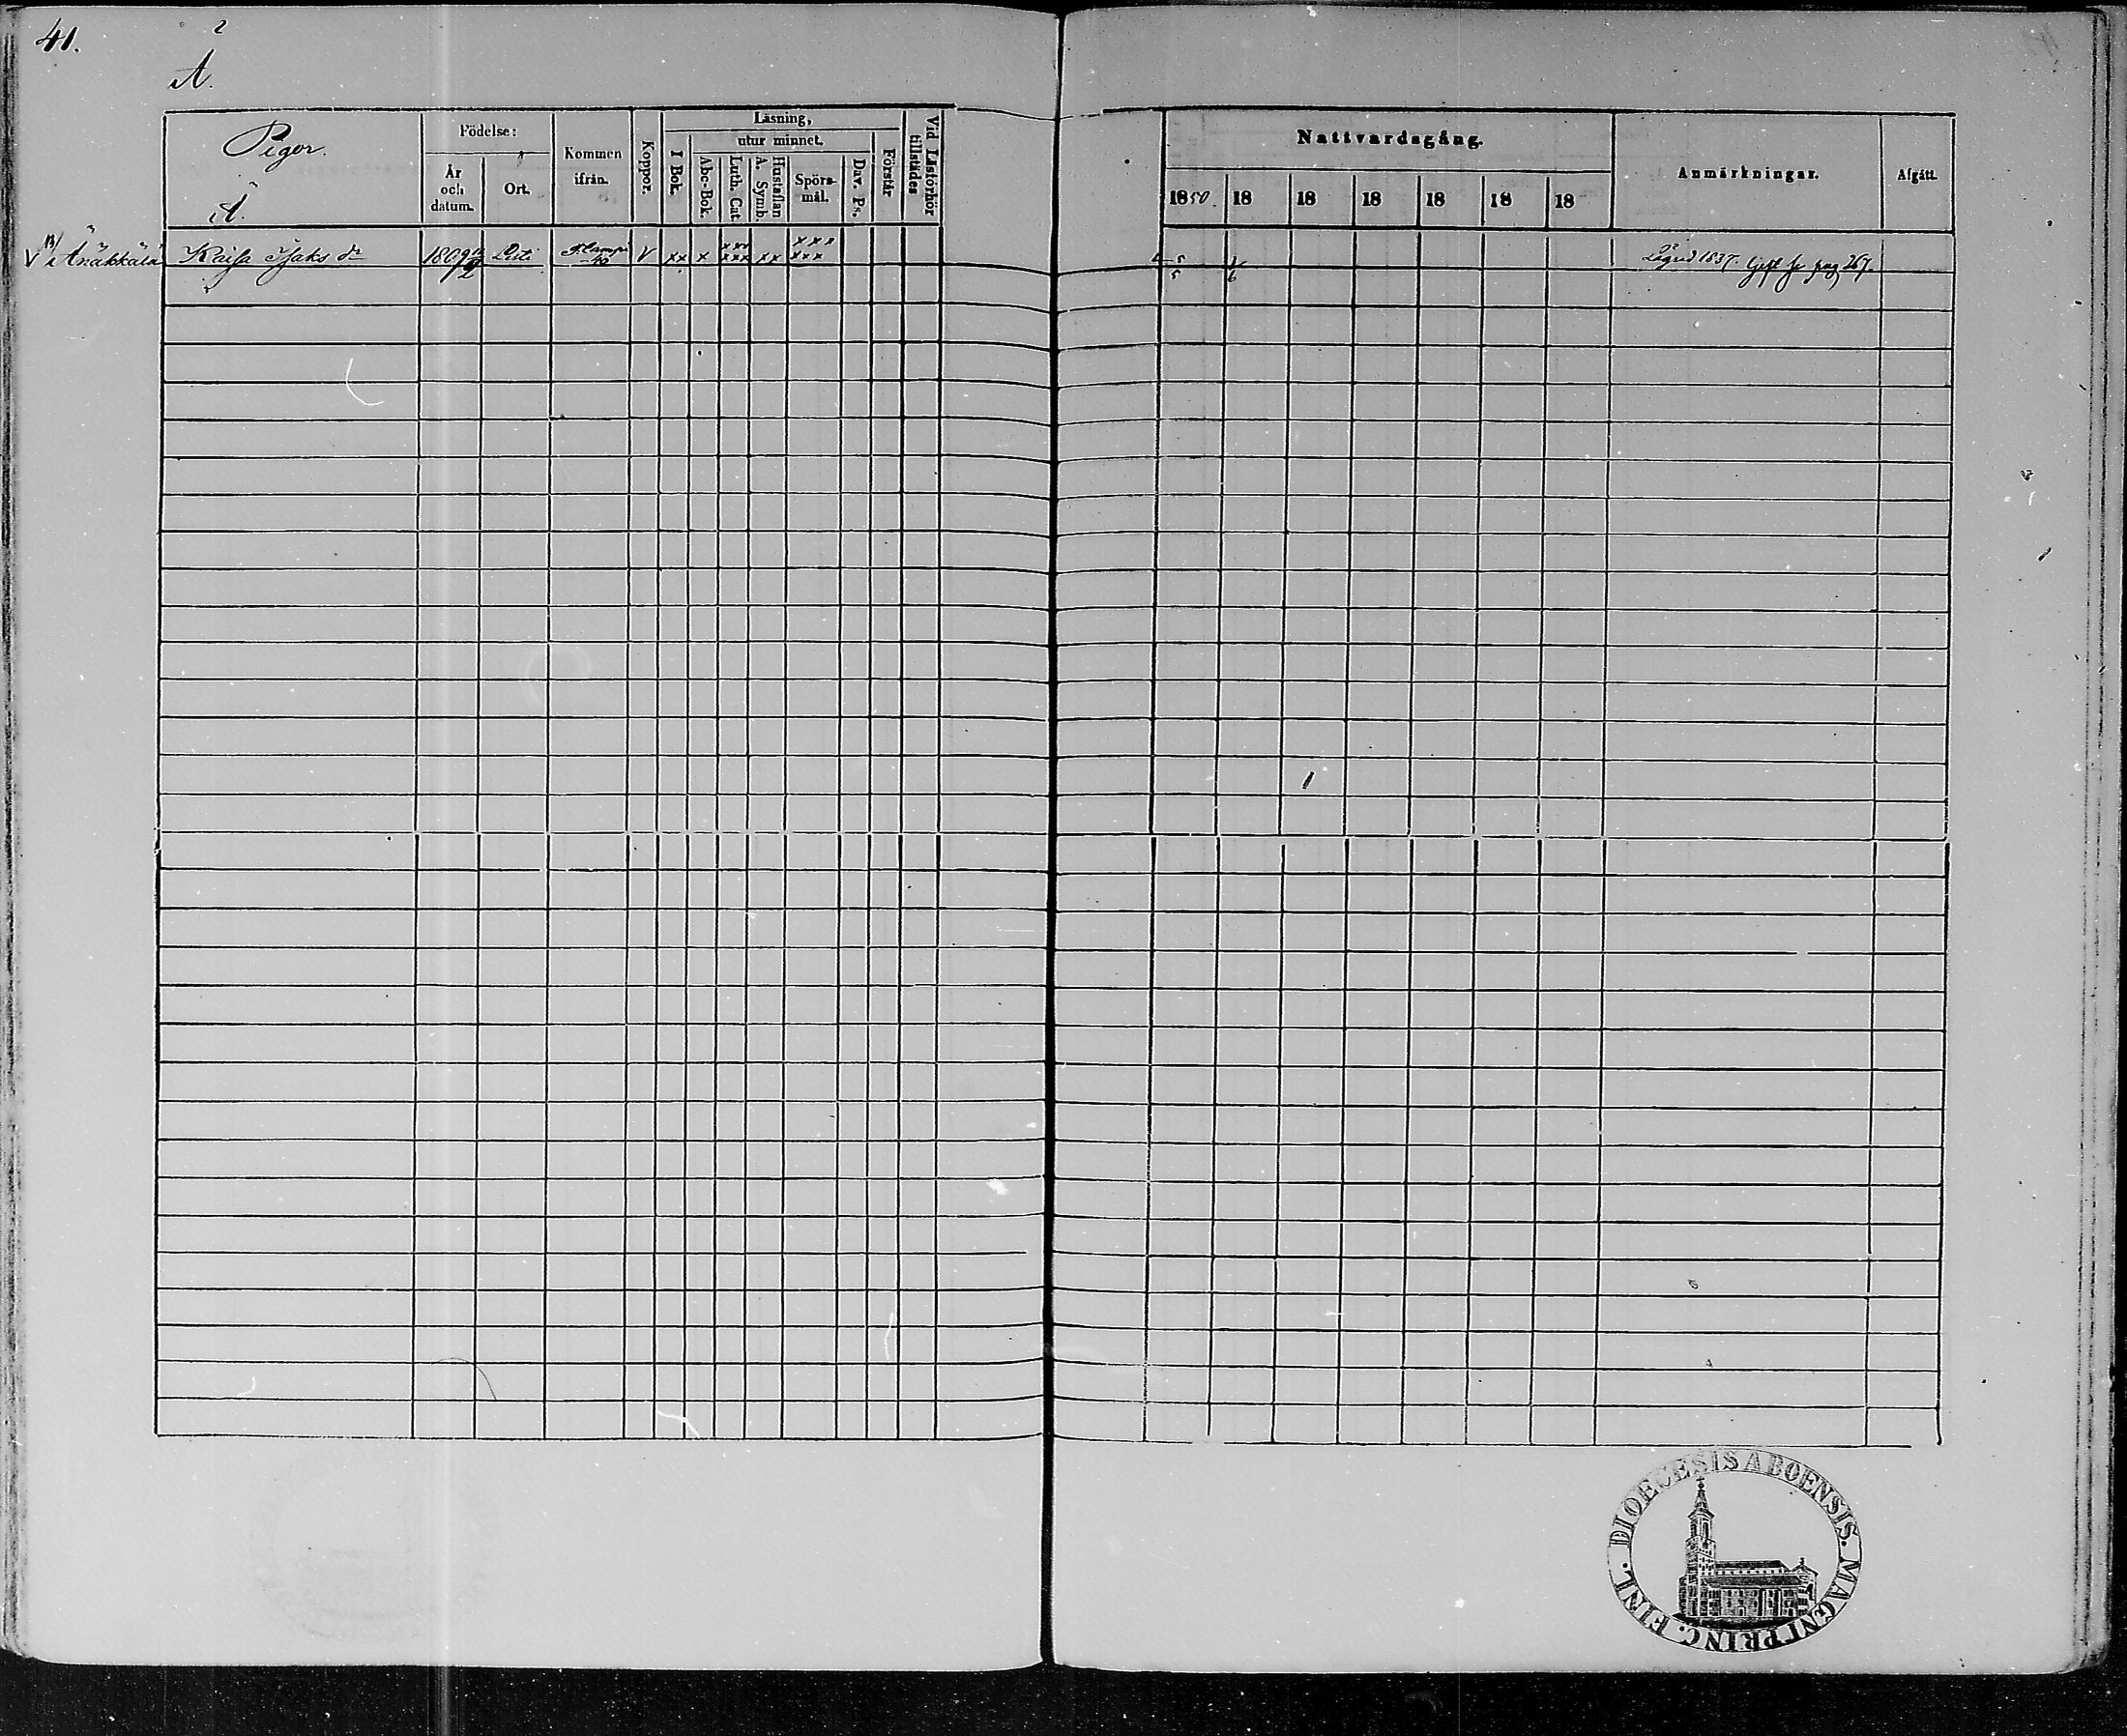 41.
Ä.
Pigor.
Ä.
Födelse:
År och datum.
Ort.
Kommen ifrån.
Koppor.
Läsning,
I Bok.
utur minnet.
Abc-Bok.
Luth. Cat.
Hustaflan A. Symb.
Spörsmål.
Dav. Ps.
Förstår
Vid Läsförhör tillstädes
Nattvardsgång.
1850. 18 18 18 18 18 18
Anmärkningar.
Afgått.
V Änäkkälä Kaisa Isaks dr 1809 V xx x xxx xxx xx xxx xxx 1837. Gift se pag 267.
DIOECESIS ABOENSIS. MAGNI PRINC. FINL.